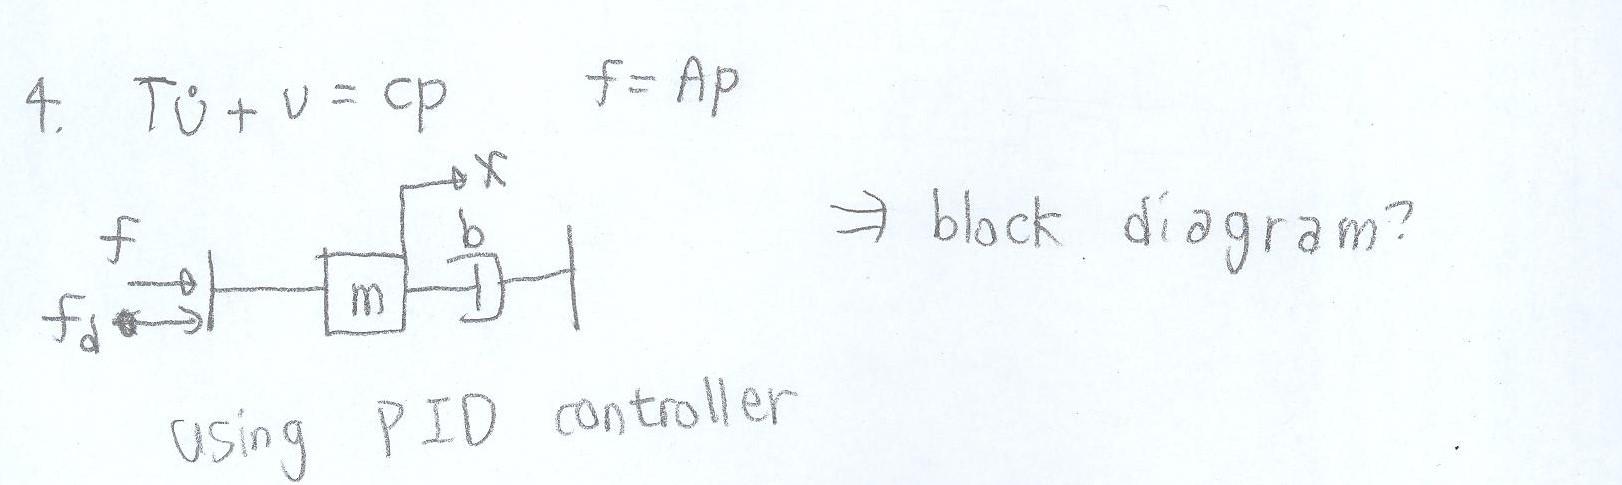 4. Tv̇ + v = cp f = Ap
x
f b
⇒ block diagram?
m
fd
using PID controller